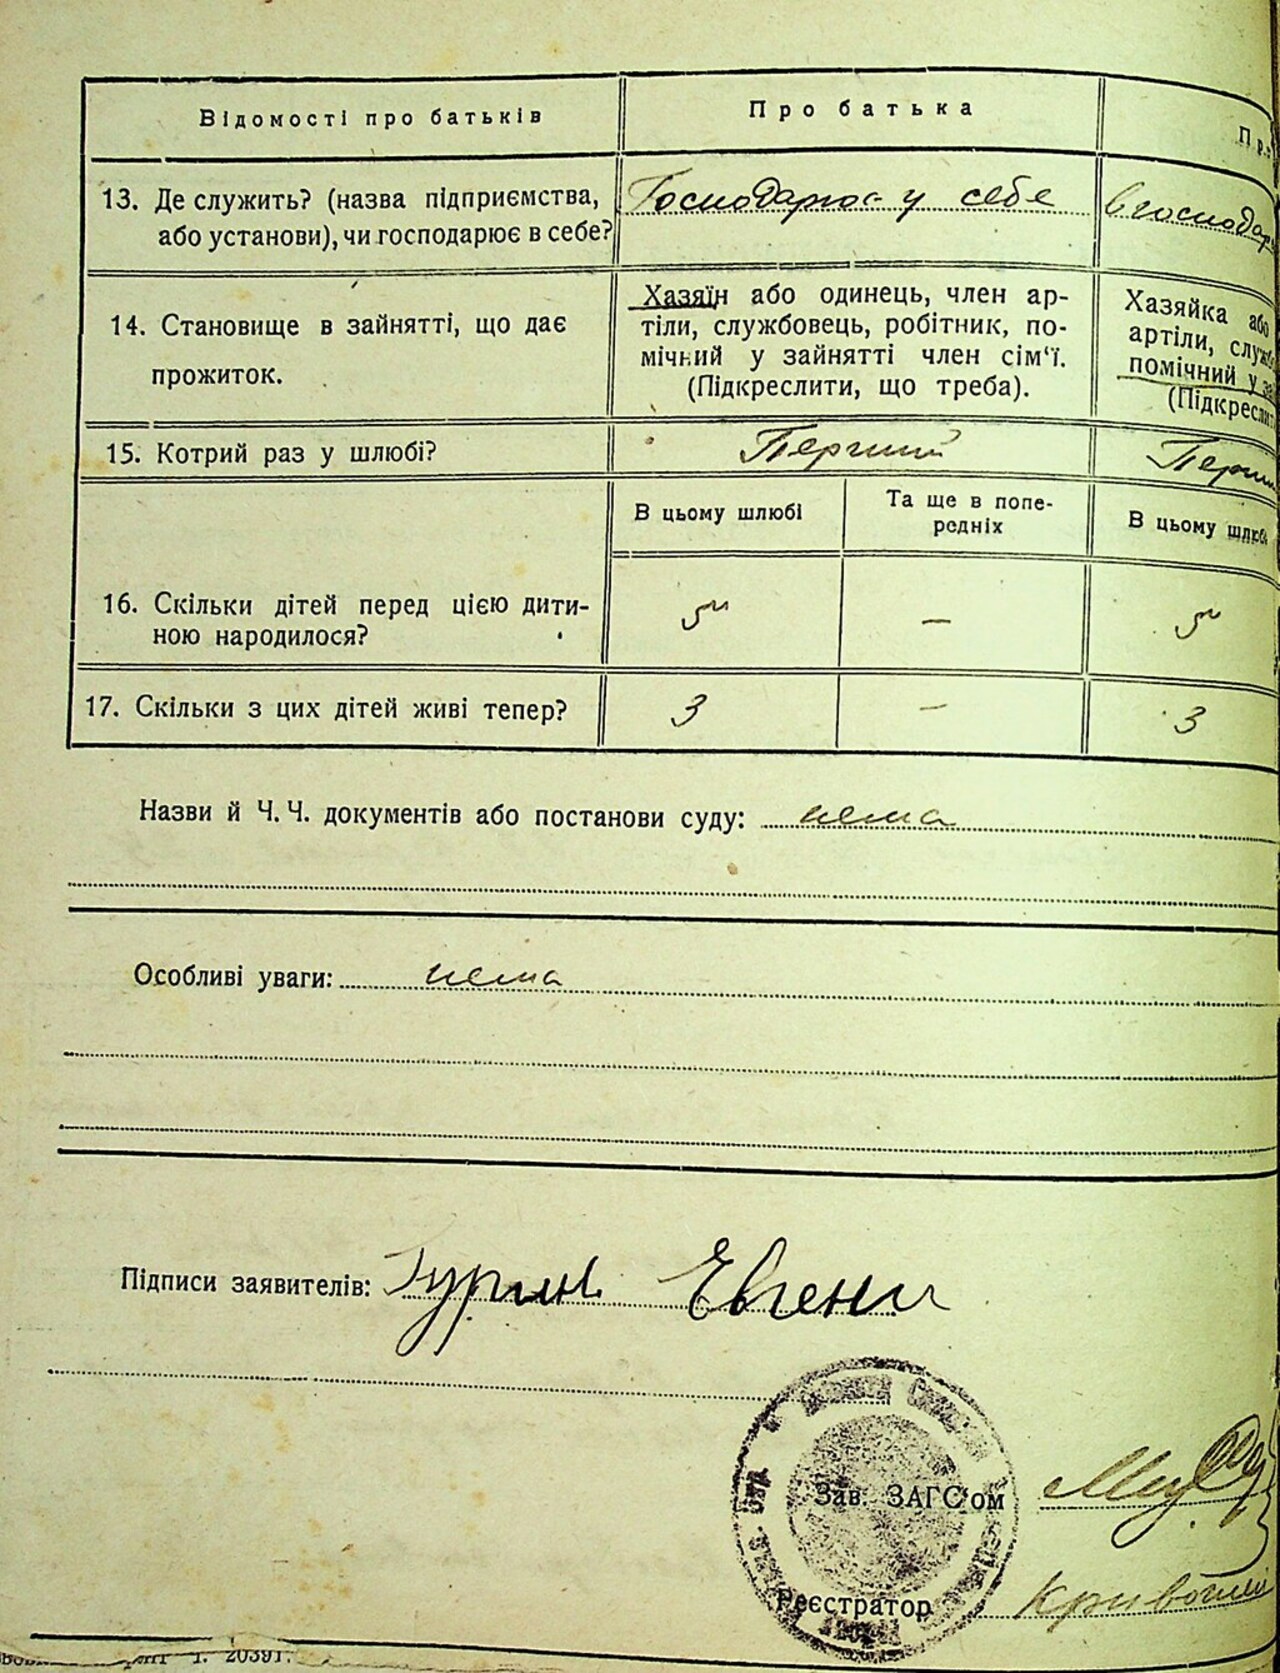 Відомості про батьків
Про батька
13. Де служить? (назва підприємства,
або установи), чи господарює в себе?
Господарює у себе
в господар
14. Становище в зайнятті, що дає
прожиток.
Хазяїн або одинець, член ар-
тіли, службовець, робітник, по-
мічний у зайнятті член сім'ї.
(Підкреслити, що треба).
Хазяйка або
артіли, служб
помічний у за
(Підкреслит
15. Котрий раз у шлюбі?
Перший
Перши
В цьому шлюбі
Та ще в попе-
редніх
В цьому шлюбі
16. Скільки дітей перед цією дити-
ною народилося?
5
–
5
17. Скільки з цих дітей живі тепер?
3
–
3
Назви й Ч. Ч. документів або постанови суду: нема
Особливі уваги: нема
Підписи заявителів: Гурин Евгени
Зав. ЗАГС'ом
Реєстратор
20391.